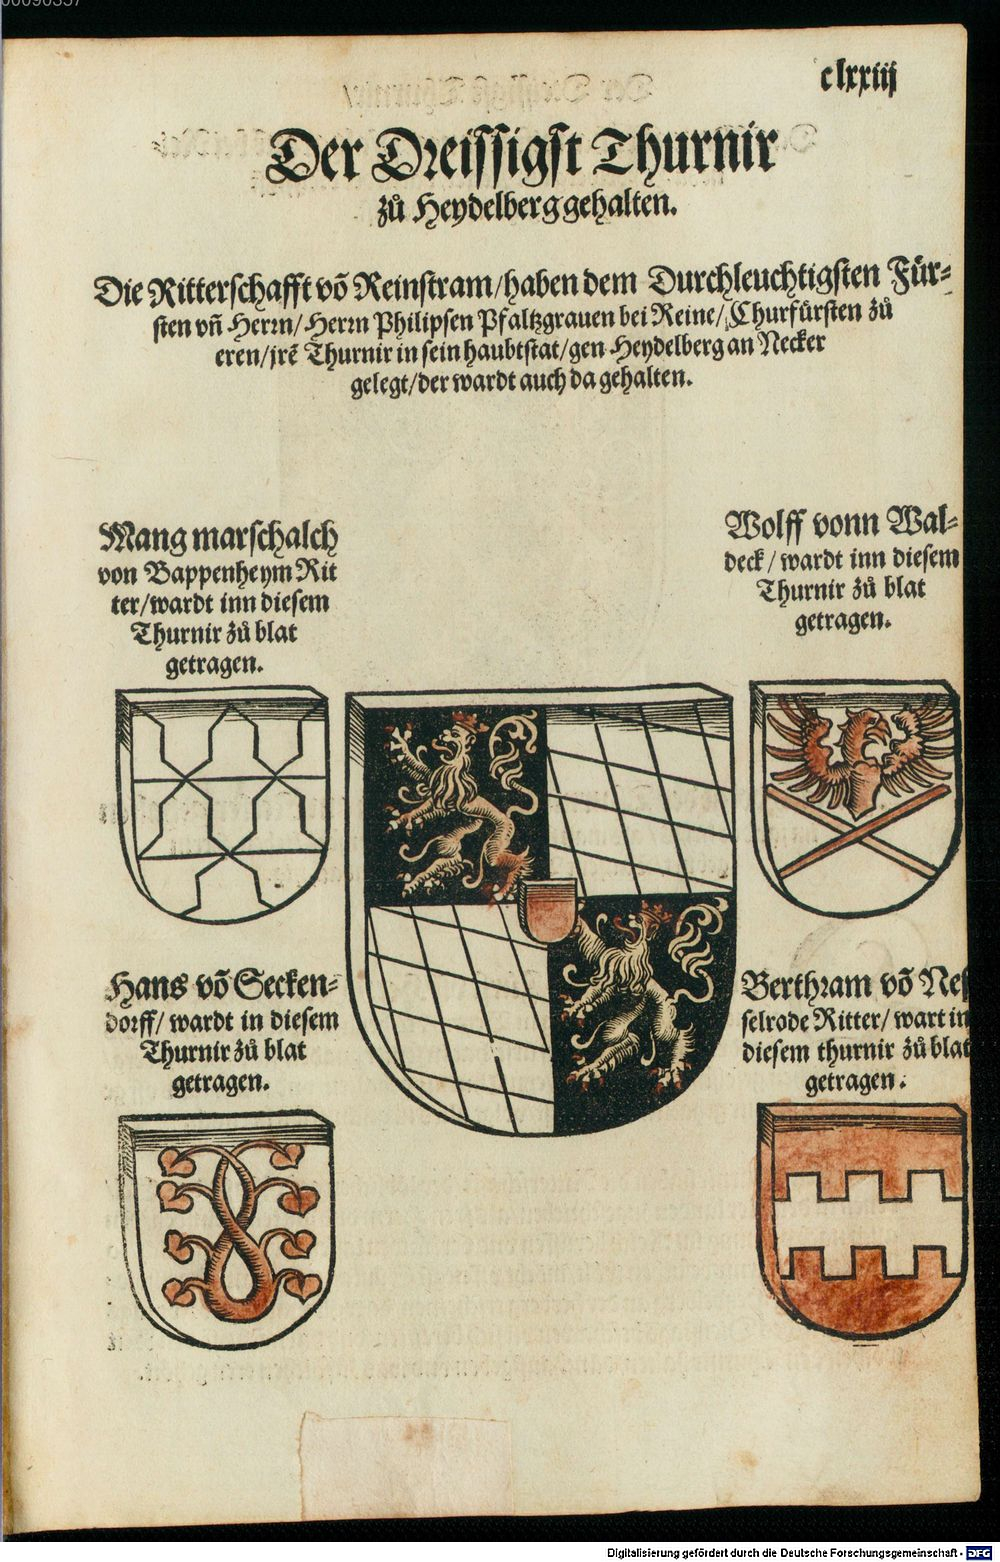 clxxiij
Der Dreissigst Thurnir
zů Heydelberg gehalten.
Die Ritterschafft vō Reinstram/haben dem Durchleuchtigsten Für-
sten vñ Herrn/Herrn Philipsen Pfaltzgrauen bei Reine/Churfürsten zů
eren/jrē Thurnir in sein haubtstat/gen Heydelberg an Necker
gelegt/der wardt auch da gehalten.
Mang marschalch
von Bappenheym Rit
ter/wardt inn diesem
Thurnir zů blat
getragen.
Wolff vonn Wal-
deck/wardt inn diesem
Thurnir zů blat
getragen.
Hans vō Secken-
dorff/wardt in diesem
Thurnir zů blat
getragen.
Berthram vō Nes
selrode Ritter/wart in
diesem thurnir zů blat
getragen.
Digitalisierung gefördert durch die Deutsche Forschungsgemeinschaft - DFG